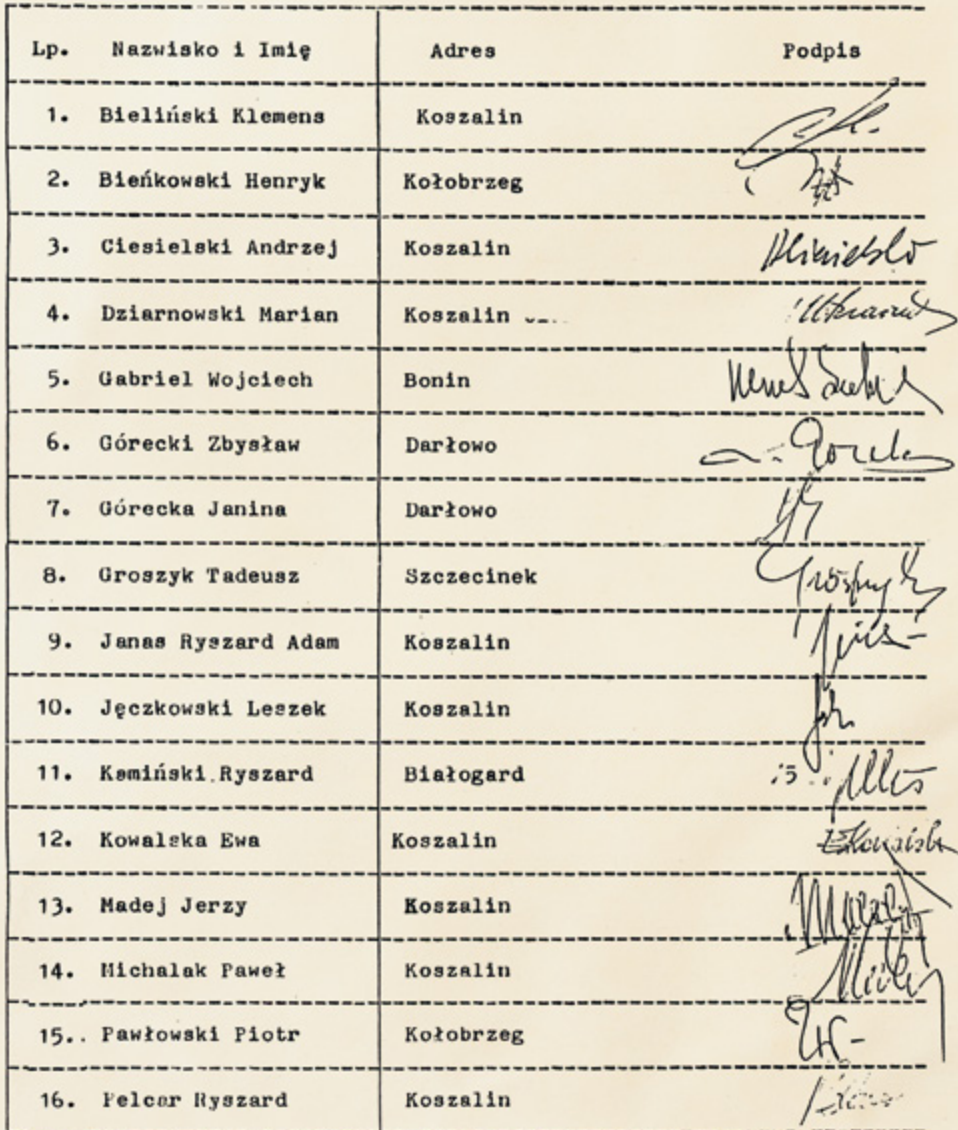 Lp. Nazwisko i Imię Adres Podpis
1. Bieliński Klemens Koszalin
2. Bieńkowski Henryk Kołobrzeg
3. Ciesielski Andrzej Koszalin
4. Dziarnowski Marian Koszalin
5. Gabriel Wojciech Bonin
6. Górecki Zbysław Darłowo
7. Górecka Janina Darłowo
8. Groszyk Tadeusz Szczecinek
9. Janas Ryszard Adam Koszalin
10. Jęczkowski Leszek Koszalin
11. Kamiński Ryszard Białogard
12. Kowalska Ewa Koszalin
13. Madej Jerzy Koszalin
14. Michalak Paweł Koszalin
15. Pawłowski Piotr Kołobrzeg
16. Pelcar Ryszard Koszalin